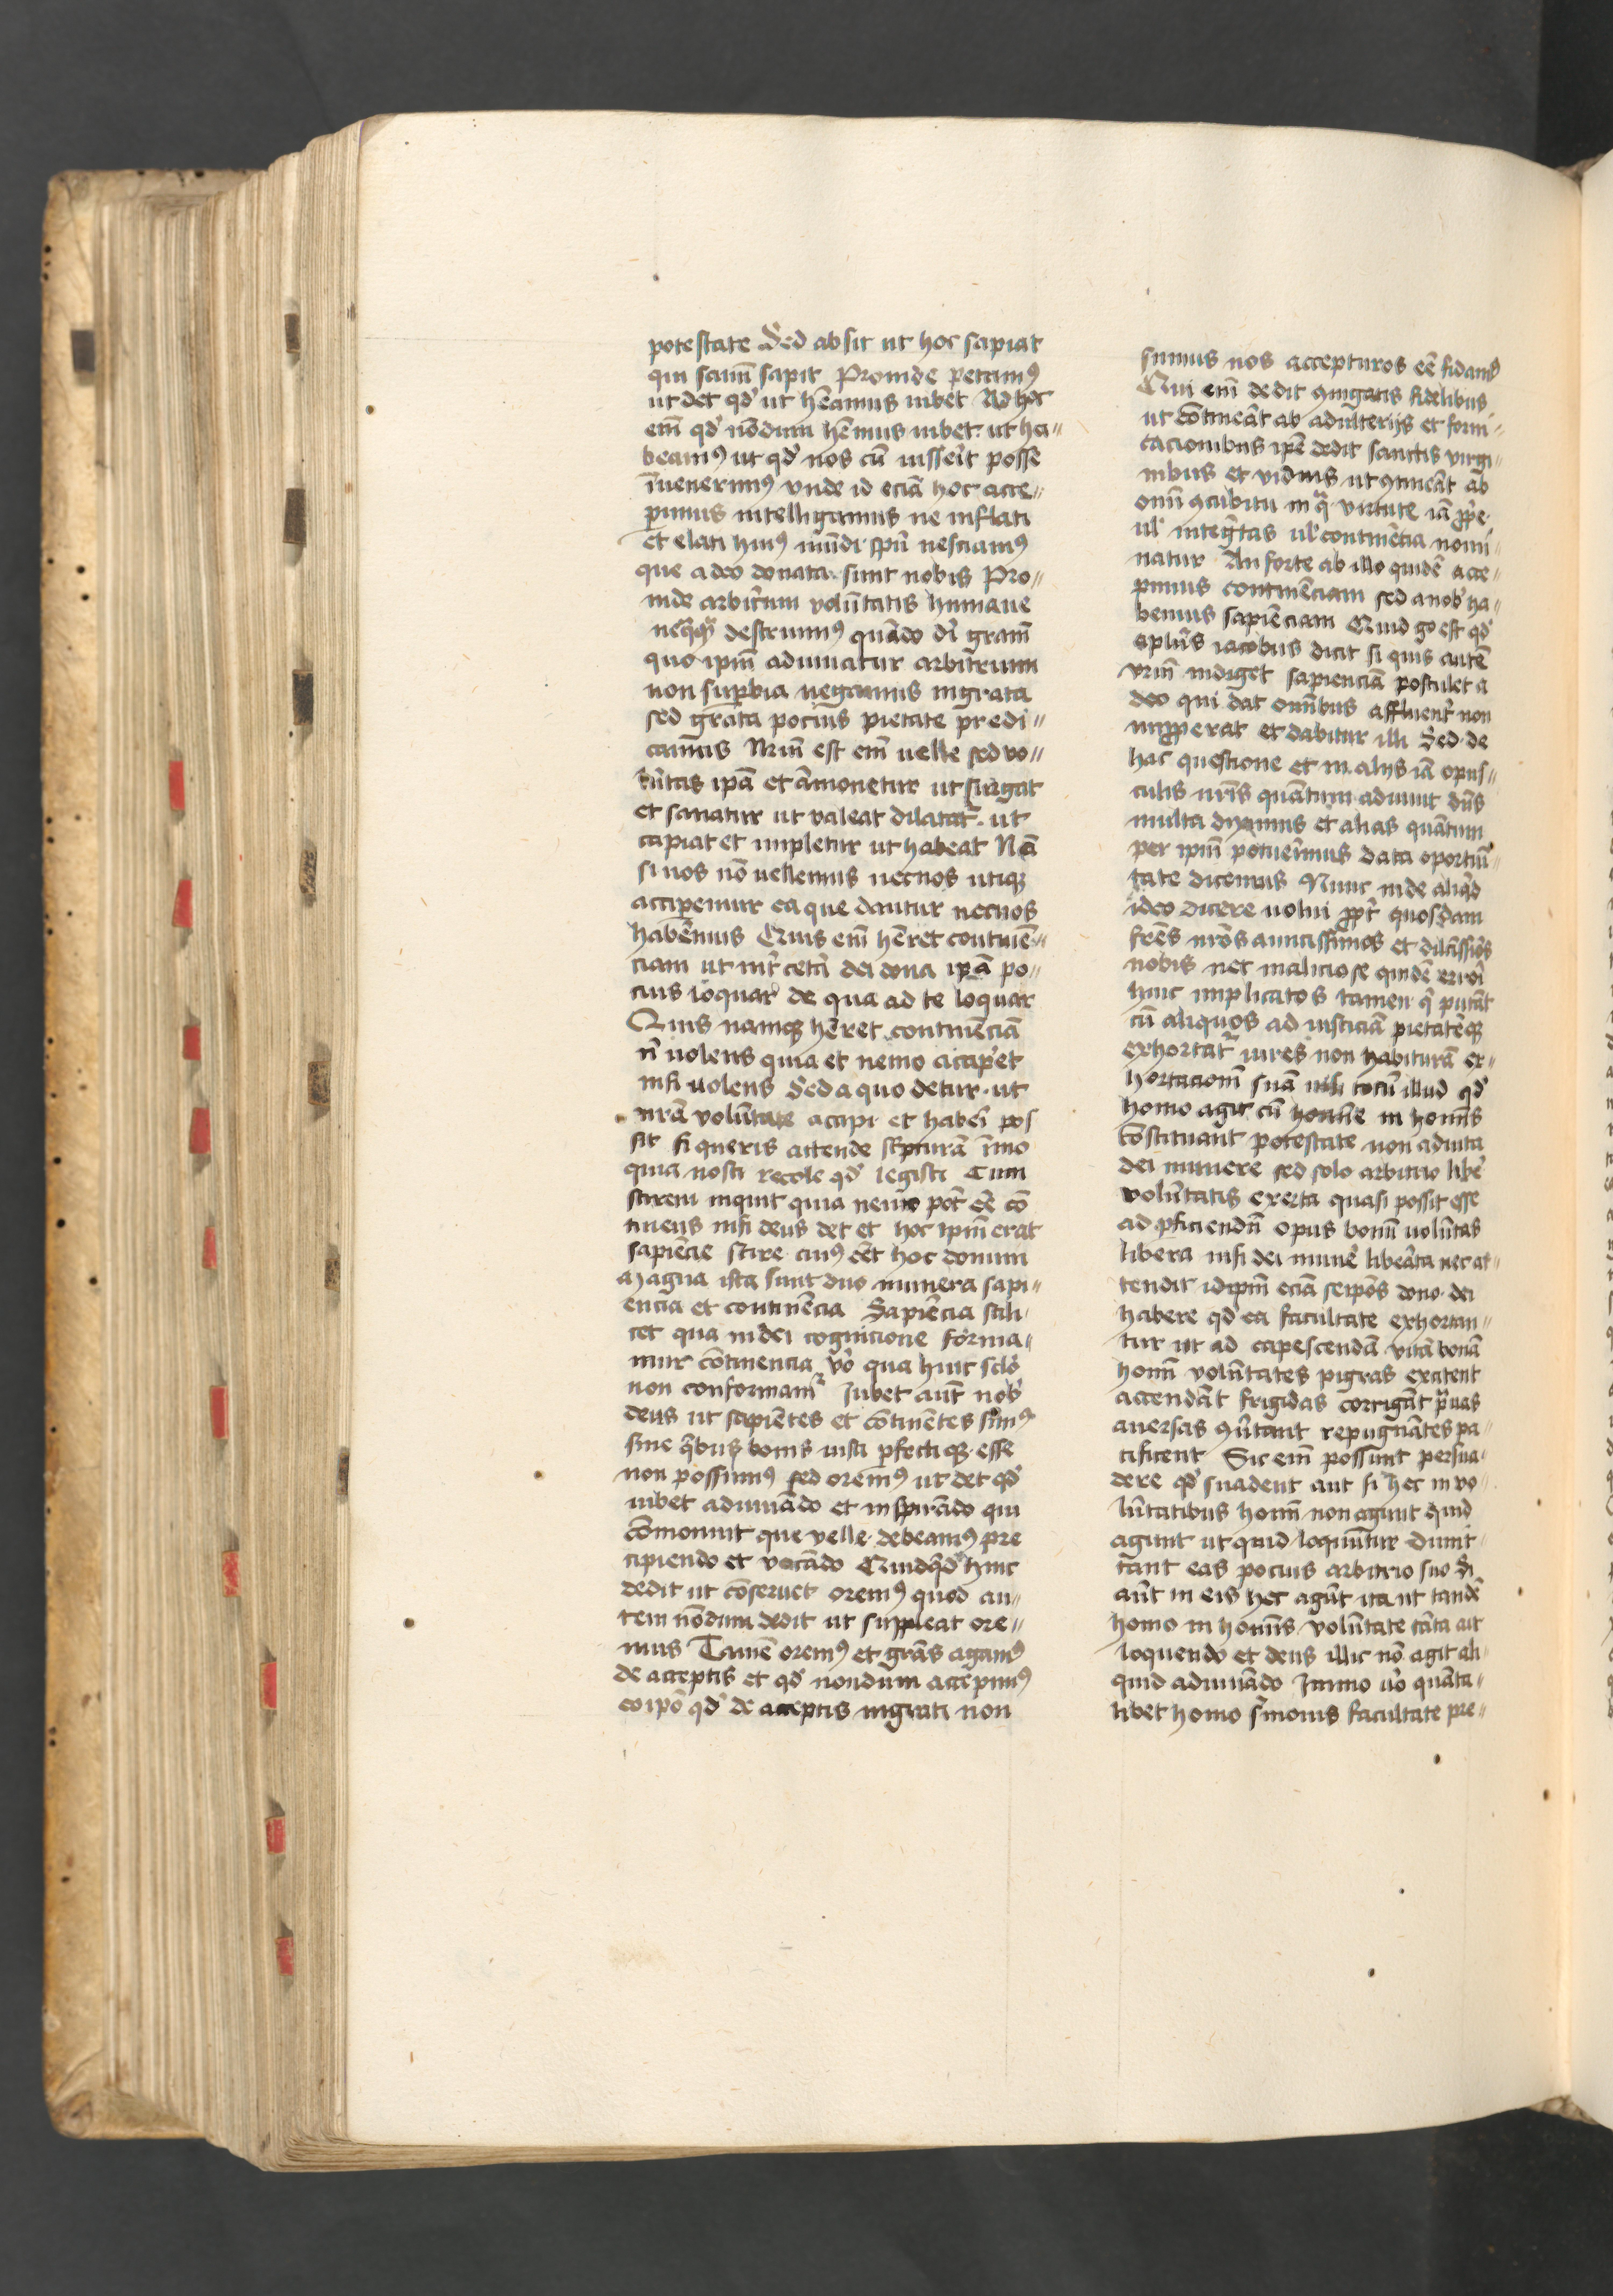 potestate Sed absit ut hoc sapiat
qui sanū sapit Proinde petamꝰ
ut det qd' ut hēamus iubet Ad hoc
em̄ qd' nōdum hēmus iubet ut ha〃
beamꝰ ut qd' nos cū iusseīt posse
īuenerimꝰ vnde id eciā hoc acce〃
pimus intelligamus ne inflati
et elati huiꝰ mūdi spū nesciamꝰ
que a deo donata sunt nobis Pro〃
inde arbitriū volūtatis humane
neq̄q̄ destruimꝰ quādo dī gram̄
quo ipm̄ adiuuatur arbitrium
non suꝑbia negamus ingrata
sed grata pocius pietate predi〃
camus Nr̄m est em̄ uelle sed vo〃
lūtas ipā et āmonetur ut surgat
et sanatur ut valeat dilatat̄ ut
capiat et impletur ut habeat Nā
si nos nō uellemus nec nos utiqꝫ
acciꝑemur ea que dantur nec nos
habēmus Quis em̄ hēret continē〃
ciam ut int̄ cetā dei dona ipā po〃
cius loquar de qua ad te loquar
Quis namqꝫ hēret continēciā
n̄ uolens quia et nemo acciꝑet
nisi uolens Sed a quo detur ut
nrā volūtate accipi et habeī pos
sit si queris attende scpturā īmo
quia nosti recole qd' legisti Cum
scirem inquit quia nemo pōt ēē cō
tinens nisi deus det et hoc ipm̄ erat
sapiēcie scire cuiꝰ ēēt hoc donum
Magna ista sunt duo munera sapi〃
encia et continēcia Sapiēcia scili
cet qua in dei cognicione forma〃
mur cōtinencia v̊o qua huic sclo
non conformamr Jubet aūt nob'
deus ut sapiētes et cōtinētes simꝰ
sine q̄bus bonis iusti ꝑfectiqꝫ esse
non possimꝰ sed oremꝰ ut det qd'
iubet adiuuādo et inspirādo qui
cōmonuit que velle debeamꝰ pre
cipiendo et vocādo Quidq̄d hinc
dedit ut cōseruet oremꝰ quod au〃
tem nōdum dedit ut suppleat ore〃
mus Tamē oremꝰ et grās agamꝰ
de acceptis et qd' nondum accepimꝰ
eo ipō qd' de acceptis ingrati non
sumus nos accepturos eē fidamꝰ
Qui em̄ dedit ꝯiugatis fidelibus
ut cōtineāt ab adulterijs et forni〃
cacionibus ipē dedit sanctis virgi〃
nibus et viduis ut ꝯtineāt ab
omī ꝯcubitu in q̄ virtute iā ꝓpe
ul' inteḡtas ul' continēcia nomi〃
natur An forte ab illo quidē acce〃
pimus continēciam sed a nob' ha〃
bemus sapiēciam Quid g̊ est qd'
aplūs iacobus dicit si quis autē
vrm̄ indiget sapienciā postulet a
deo qui dat omībus affluent̄ non
imꝓperat et dabitur illi Sed de
hac questione et in alijs iā opus〃
culis nrīs quātum adiuuit dn̄s
multa diximus et alias quātum
per ipm̄ potueīmus data oportuī〃
tate dicemus Nunc inde aliq̄d
ideo dicere uolui ꝓpt̄ quosdam
frēs nrōs amicissimos et dilc̄issiōs
nobis nec maliciose quidē erroī
huic implicatos tamen q̄ putāt
cū aliquos ad iusticiā pietatēqꝫ
exhortat̄ uires non habiturā ex〃
hortacionē suā nisi totū illud qd'
homo agit cū homīe in homīs
cōstituant potestate non adiuta
dei munere sed solo arbitrio libē
volūtatis exerta quasi possit esse
ad ꝑficiendū opus bonū uolūtas
libera nisi dei munē libeāta nec at〃
tendit id ipm̄ eciā seipōs dono dei
habere qd' ea facultate exhortan〃
tur ut ad capescendā vitā bonā
homī volūtates pigras excitent
accendāt frigidas corrigāt p̄uas
auersas ꝯūtant repugnātes pa〃
cificent Sic em̄ possunt persua〃
dere qd' suadent aut si hec in vo〃
lūtatibus homī non agunt quid
agunt ut quid loquūtur dimit〃
tant eas pocius arbitrio suo Si
aūt in eis hec agūt ita ut tandē
homo in homīs volūtate tāta ait
loquendo et deus illic nō agit ali〃
quid adiuuādo Jmmo v̊o quāta〃
libet homo sm̄onis facultate pre〃